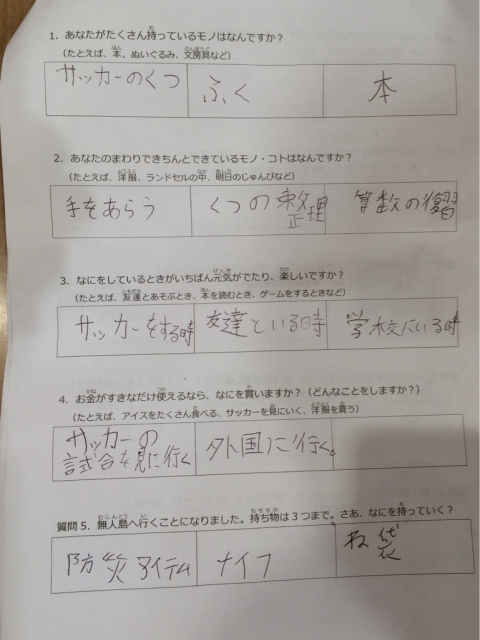 1. あなたがたくさん持っているモノはなんですか？
（たとえば、本、ぬいぐるみ、文房具など）
サッカーのくつ ふく 本
2. あなたのまわりできちんとできているモノ・コトはなんですか？
（たとえば、洋服、ランドセルの中、明日のじゅんびなど）
手をあらう くつの整理 算数の復習
3. なにをしているときがいちばん元気がでたり、楽しいですか？
（たとえば、友達とあそぶとき、本を読むとき、ゲームをするときなど）
サッカーをする時 友達といる時 学校にいる時
4. お金がすきなだけ使えるなら、なにを買いますか？（どんなことをしますか？）
（たとえば、アイスをたくさん食べる、サッカーを見にいく、洋服を買う）
サッカーの
試合を見に行く 外国に行く。
質問 5. 無人島へ行くことになりました。持ち物は3つまで。さあ、なにを持っていく？
防災アイテム ナイフ ね袋